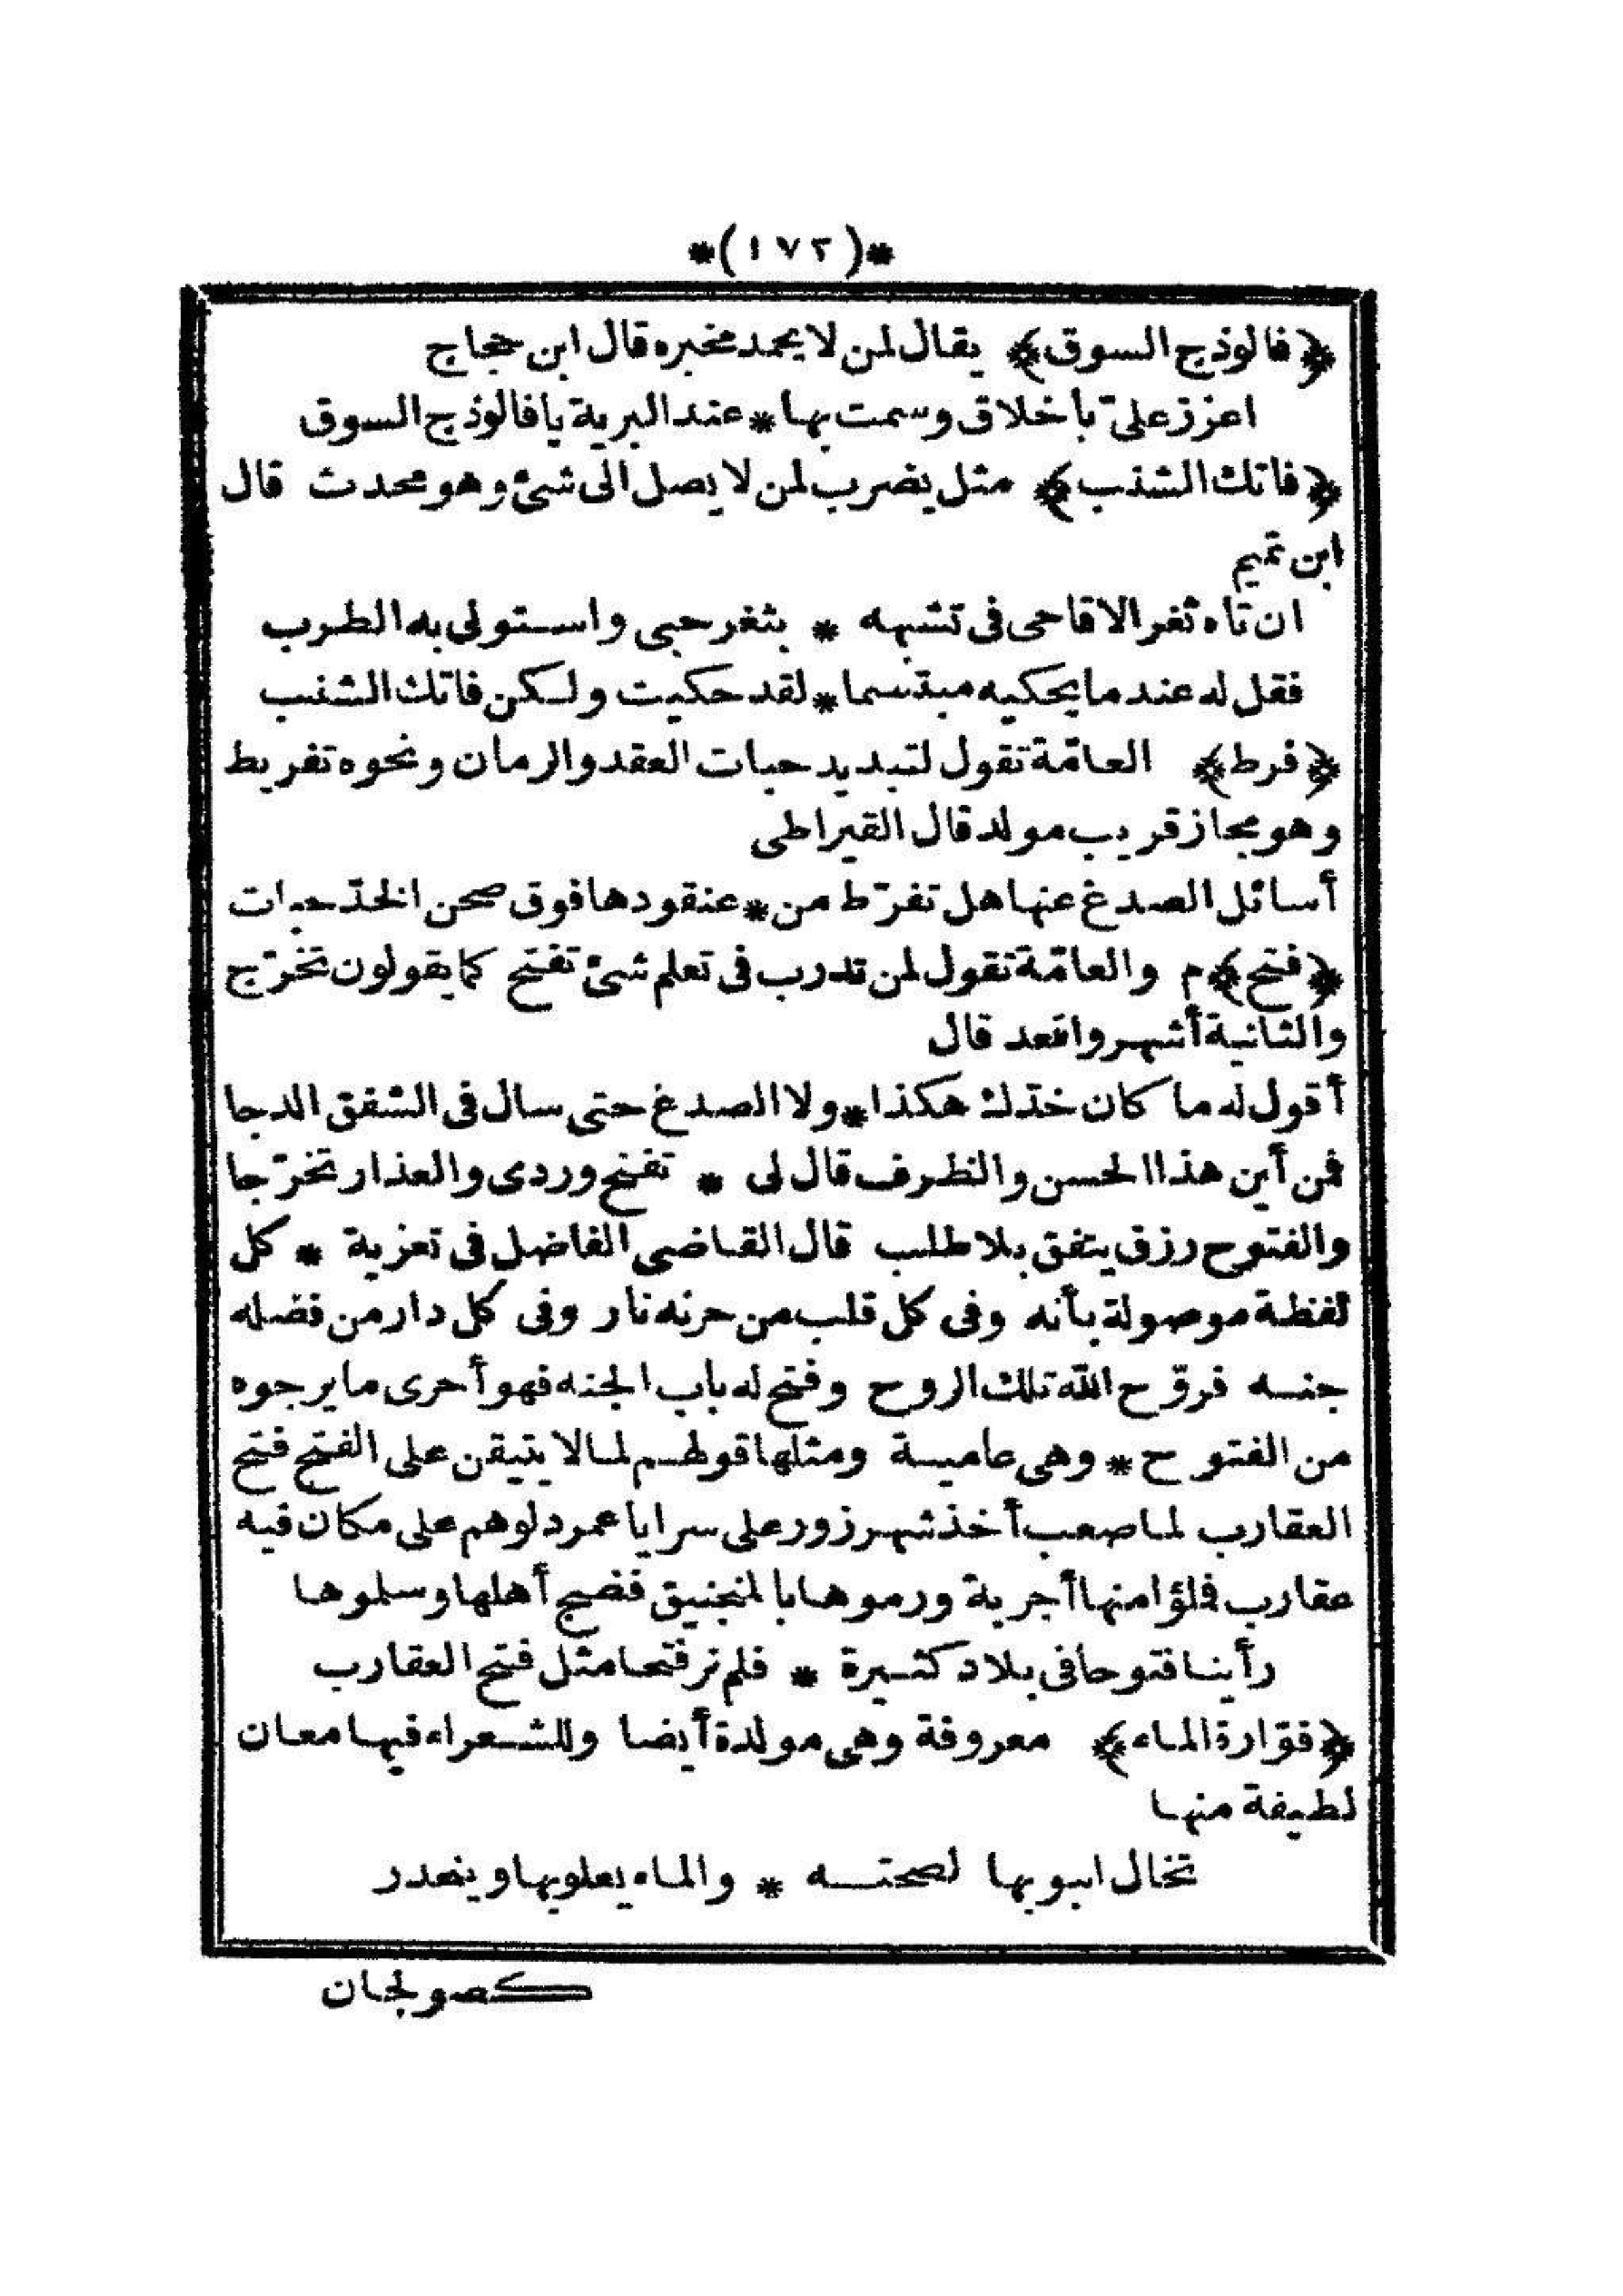 *(١٧٢)*
﴿فالوذج السوق﴾ يقال لمن لا يحمد مخبره قال ابن حجاج
اعزز علىّ با خلاق وسمت بها * عند البرية يا فالوذج السوق
﴿فاتك الشنب﴾ مثل يضرب لمن لا يصل الى شئ وهو محدث قال
ابن تميم
ان تاه ثغر الاقاحى فى تشبهه * بثغر حبى واستولى به الطرب
فقل له عند ما يحكيه مبتسما * لقد حكيت ولكن فاتك الشنب
﴿فرط﴾ العامّة تقول لتبديد حبات العقد والرمان ونحوه تفريط
وهو مجاز قريب مولد قال القيراطى
أسائل الصدغ عنها هل تفرّط من * عنقودها فوق صحن الخدّ حبات
﴿فتح﴾ م والعامّة تقول لمن تدرب فى تعلم شئ تفتح كما يقولون تخرّج
والثانية أشهر واقعد قال
أقول له ما كان خدّك هكذا * ولا الصدغ حتى سال فى الشفق الدجا
فمن أين هذا الحسن والظرف قال لى * تفتح وردى والعذار تخرّجا
والفتوح رزق يتفق بلا طلب قال القاضى الفاضل فى تعزية * كل
لفظة موصولة بأنه وفى كل قلب من حزنه نار وفى كل دار من فضله
جنسه فروّح الله تلك الروح وفتح له باب الجنه فهو أحرى ما يرجوه
من الفتوح * وهى عامية ومثلها قولهم لما لا يتيقن على الفتح فتح
العقارب لما صعب أخذ شهرزور على سرايا عمر دلوهم على مكان فيه
عقارب فلؤا منها أجربة ورموها بالمنجنيق فضج أهلها وسلموها
رأينا فتوحا فى بلاد كثيرة * فلم نر فتحا مثل فتح العقارب
﴿فوّارة الماء﴾ معروفة وهى مولدة أيضا وللشعراء فيها معان
لطيفة منها
تخال انبوبها لصحته * والماء يعلو بها وينحدر
كصولجان